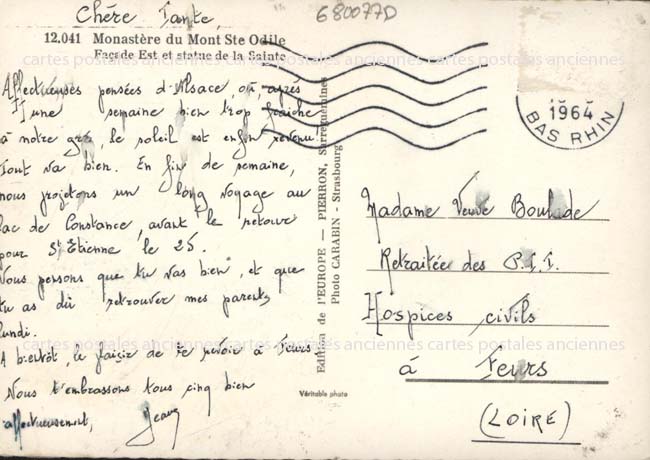 Chère Tante,
680077D
12.041 Monastère du Mont Ste Odile
Façade Est et statue de la Sainte
cartes postales anciennes cartes postales anciennes cartes postales anciennes
Affectueuses pensées d'Alsace, où, après
une semaine bien trop fraîche
à notre gré, le soleil est enfin revenu!
Tout va bien. En fin de semaine,
nous projetons un long voyage au
lac de Constance, avant le retour
pour St Etienne le 25.
Nous pensons que tu vas bien, et que
tu as dû retrouver mes parents
lundi.
cartes postales anciennes cartes postales anciennes cartes postales anciennes
A bientôt, le plaisir de te revoir à Feurs
Nous t'embrassons tous cinq bien
affectueusement,
Edition de l'EUROPE — PIERRON, Sarreguemines
Photo CARABIN - Strasbourg
Véritable photo
1964
BAS RHIN
Madame Veuve Boulade
Retraitée des P.T.T.
Hospices civils
à Feurs
(LOIRE)